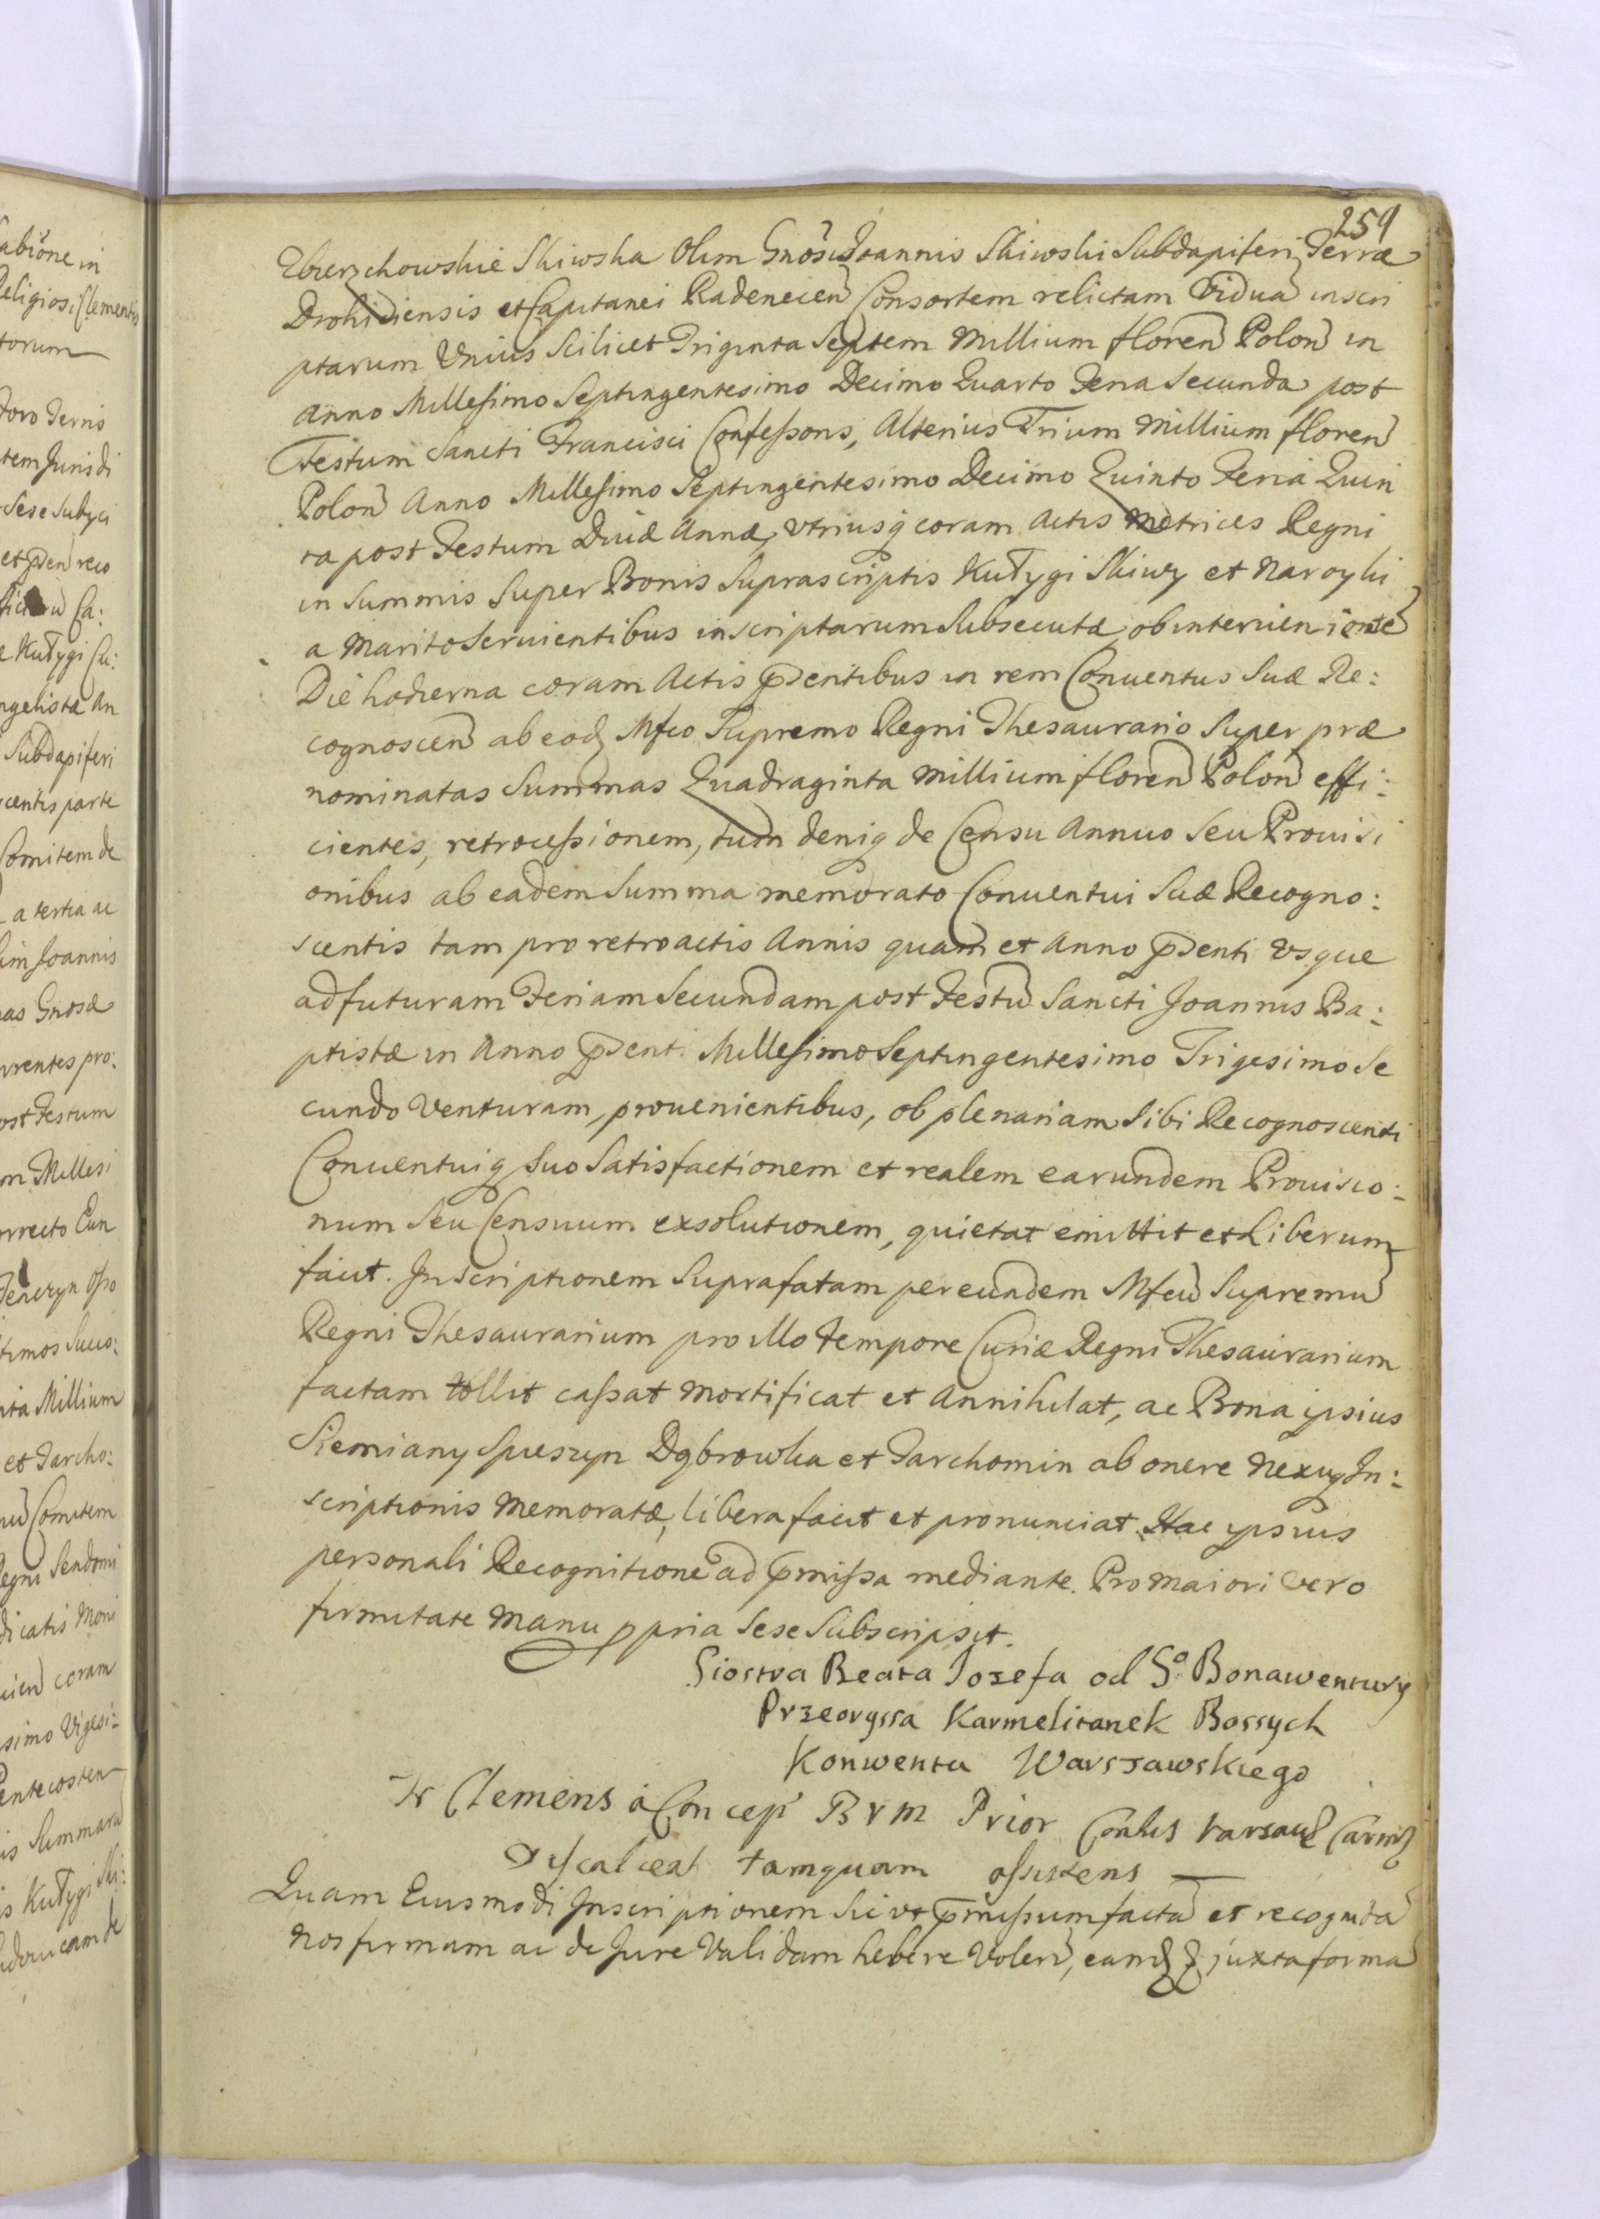 259
Zbierzchowskie Skiwska Olim Gnosi Joannis Skiwski Subdapiferi Terræ
Drohiciensis et Capitanei Radenecen Consortem relictam Vidua inscri
ptarum Unius Scilicet Triginta Septem Millium floren Polon in
Anno Millesimo Septingentesimo Decimo Quarto Feria Secunda post
Festum Sancti Francisci Confessoris, Alterius Trium Millium floren
Polon Anno Millesimo Septingentesimo Decimo Quinto Feria Quin
ta post Festum Divæ Annæ, Utriusq coram Actis Metrices Regni
in Summis Super Bonis Suprascriptis Kutygi Skiwy et Naroyki
a Marito Servientibus inscriptarum Subsecutæ, ob intervenionte
Die hodierna coram Actis pñtibus in rem Conventus Suæ Re:
cognoscen ab eod Mfco Supremo Regni Thesaurario Super præ
nominatas Summas Quadraginta Millium floren Polon effi:
cientes, retrocessionem, tum deniq de Censu Annuo Seu Provisi
onibus ab eadem Summa memorato Conventui Suæ Recogno:
scentis tam pro retroactis Annis quam et Anno pñti usque
ad futuram Feriam Secundam post Festu Sancti Joannis Ba:
ptistæ in Anno pñti Millesimo Septingentesimo Trigesimo Se
cundo Venturam, provenientibus, ob plenariam Sibi Recognoscenti
Conventuiq Suo Satisfactionem et realem earundem Provisio:
num Seu Censuum exsolutionem, quietat emittit et Liberum
facit. Inscriptionem Suprafatam per eundem Mfcu Supremu
Regni Thesaurarium pro illo tempore Curiæ Regni Thesaurarium
factam tollit cassat Mortificat et Annihilat, ac Bona ipsius
Siemiany Spieszyn Dąbrowka et Tarchomin ab onere Nexuq In:
scriptionis Memoratæ, libera facit et pronunciat. Hac ipsius
personali Recognitione ad pmissa mediante. Pro Maiori vero
firmitate Manu ppria Sese Subscripsit.
Siostra Beata Jozefa od S° Bonawentury
Przeoryssa Karmelitanek Bossych
Konwentu Warszawskiego
Fr Clemens a Concep B V M Prior Contus Varsau Carm
discalceat tamquam assistens
Quam Eiusmodi Inscriptionem Sic ut pmissum facta et recognita
Nos firmam ac de Jure Validam hebere Volen, eamq juxta forma